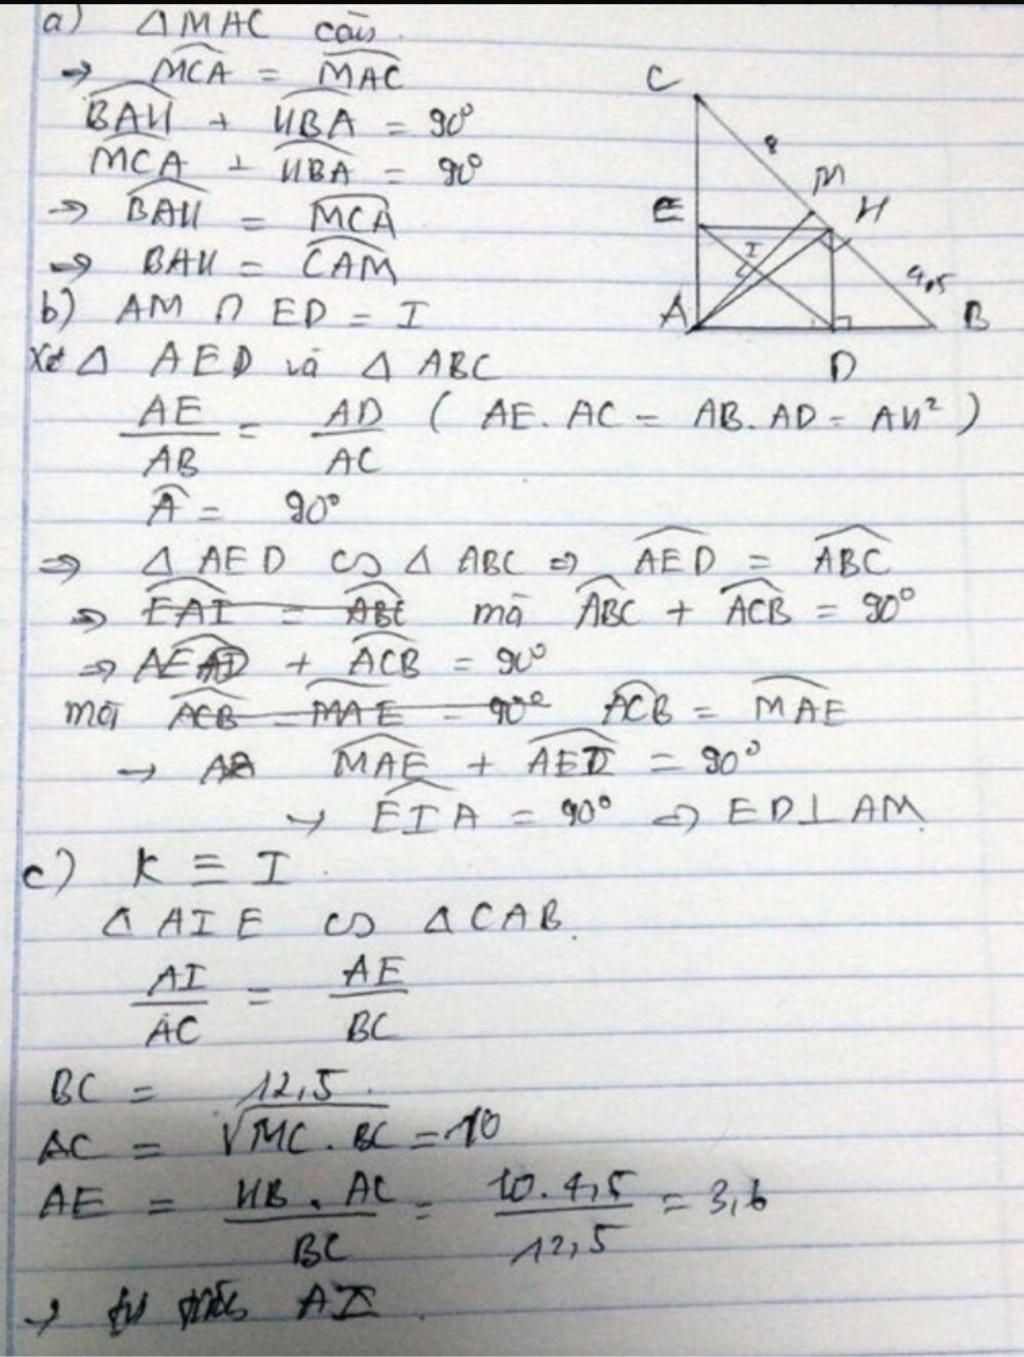 a) ΔMAC cân
→ MCA = MAC
BAH + HBA = 90°
MCA + HBA = 90°
→ BAH = MCA
→ BAH = CAM
b) AM ∩ ED = I
Xét Δ AED và Δ ABC
AE/AB = AD/AC ( AE. AC = AB. AD = AH² )
A = 90°
⇒ Δ AED ∽ Δ ABC ⇒ AED = ABC
⇒ EAI = ABC mà ABC + ACB = 90°
⇒ AED + ACB = 90°
mà ACB = MAE = 90° ACB = MAE
→ MAE + AED = 90°
→ EIA = 90° ⇒ ED⊥AM
c) K ≡ I
Δ AIE ∽ ΔCAB.
AI/AC = AE/BC
BC = 12,5.
AC = √MC . BC = 10
AE = HB . AC/BC = 10. 4,5/12,5 = 3,6
→ AI.
C
8
M
E
H
I
4,5
A
B
D